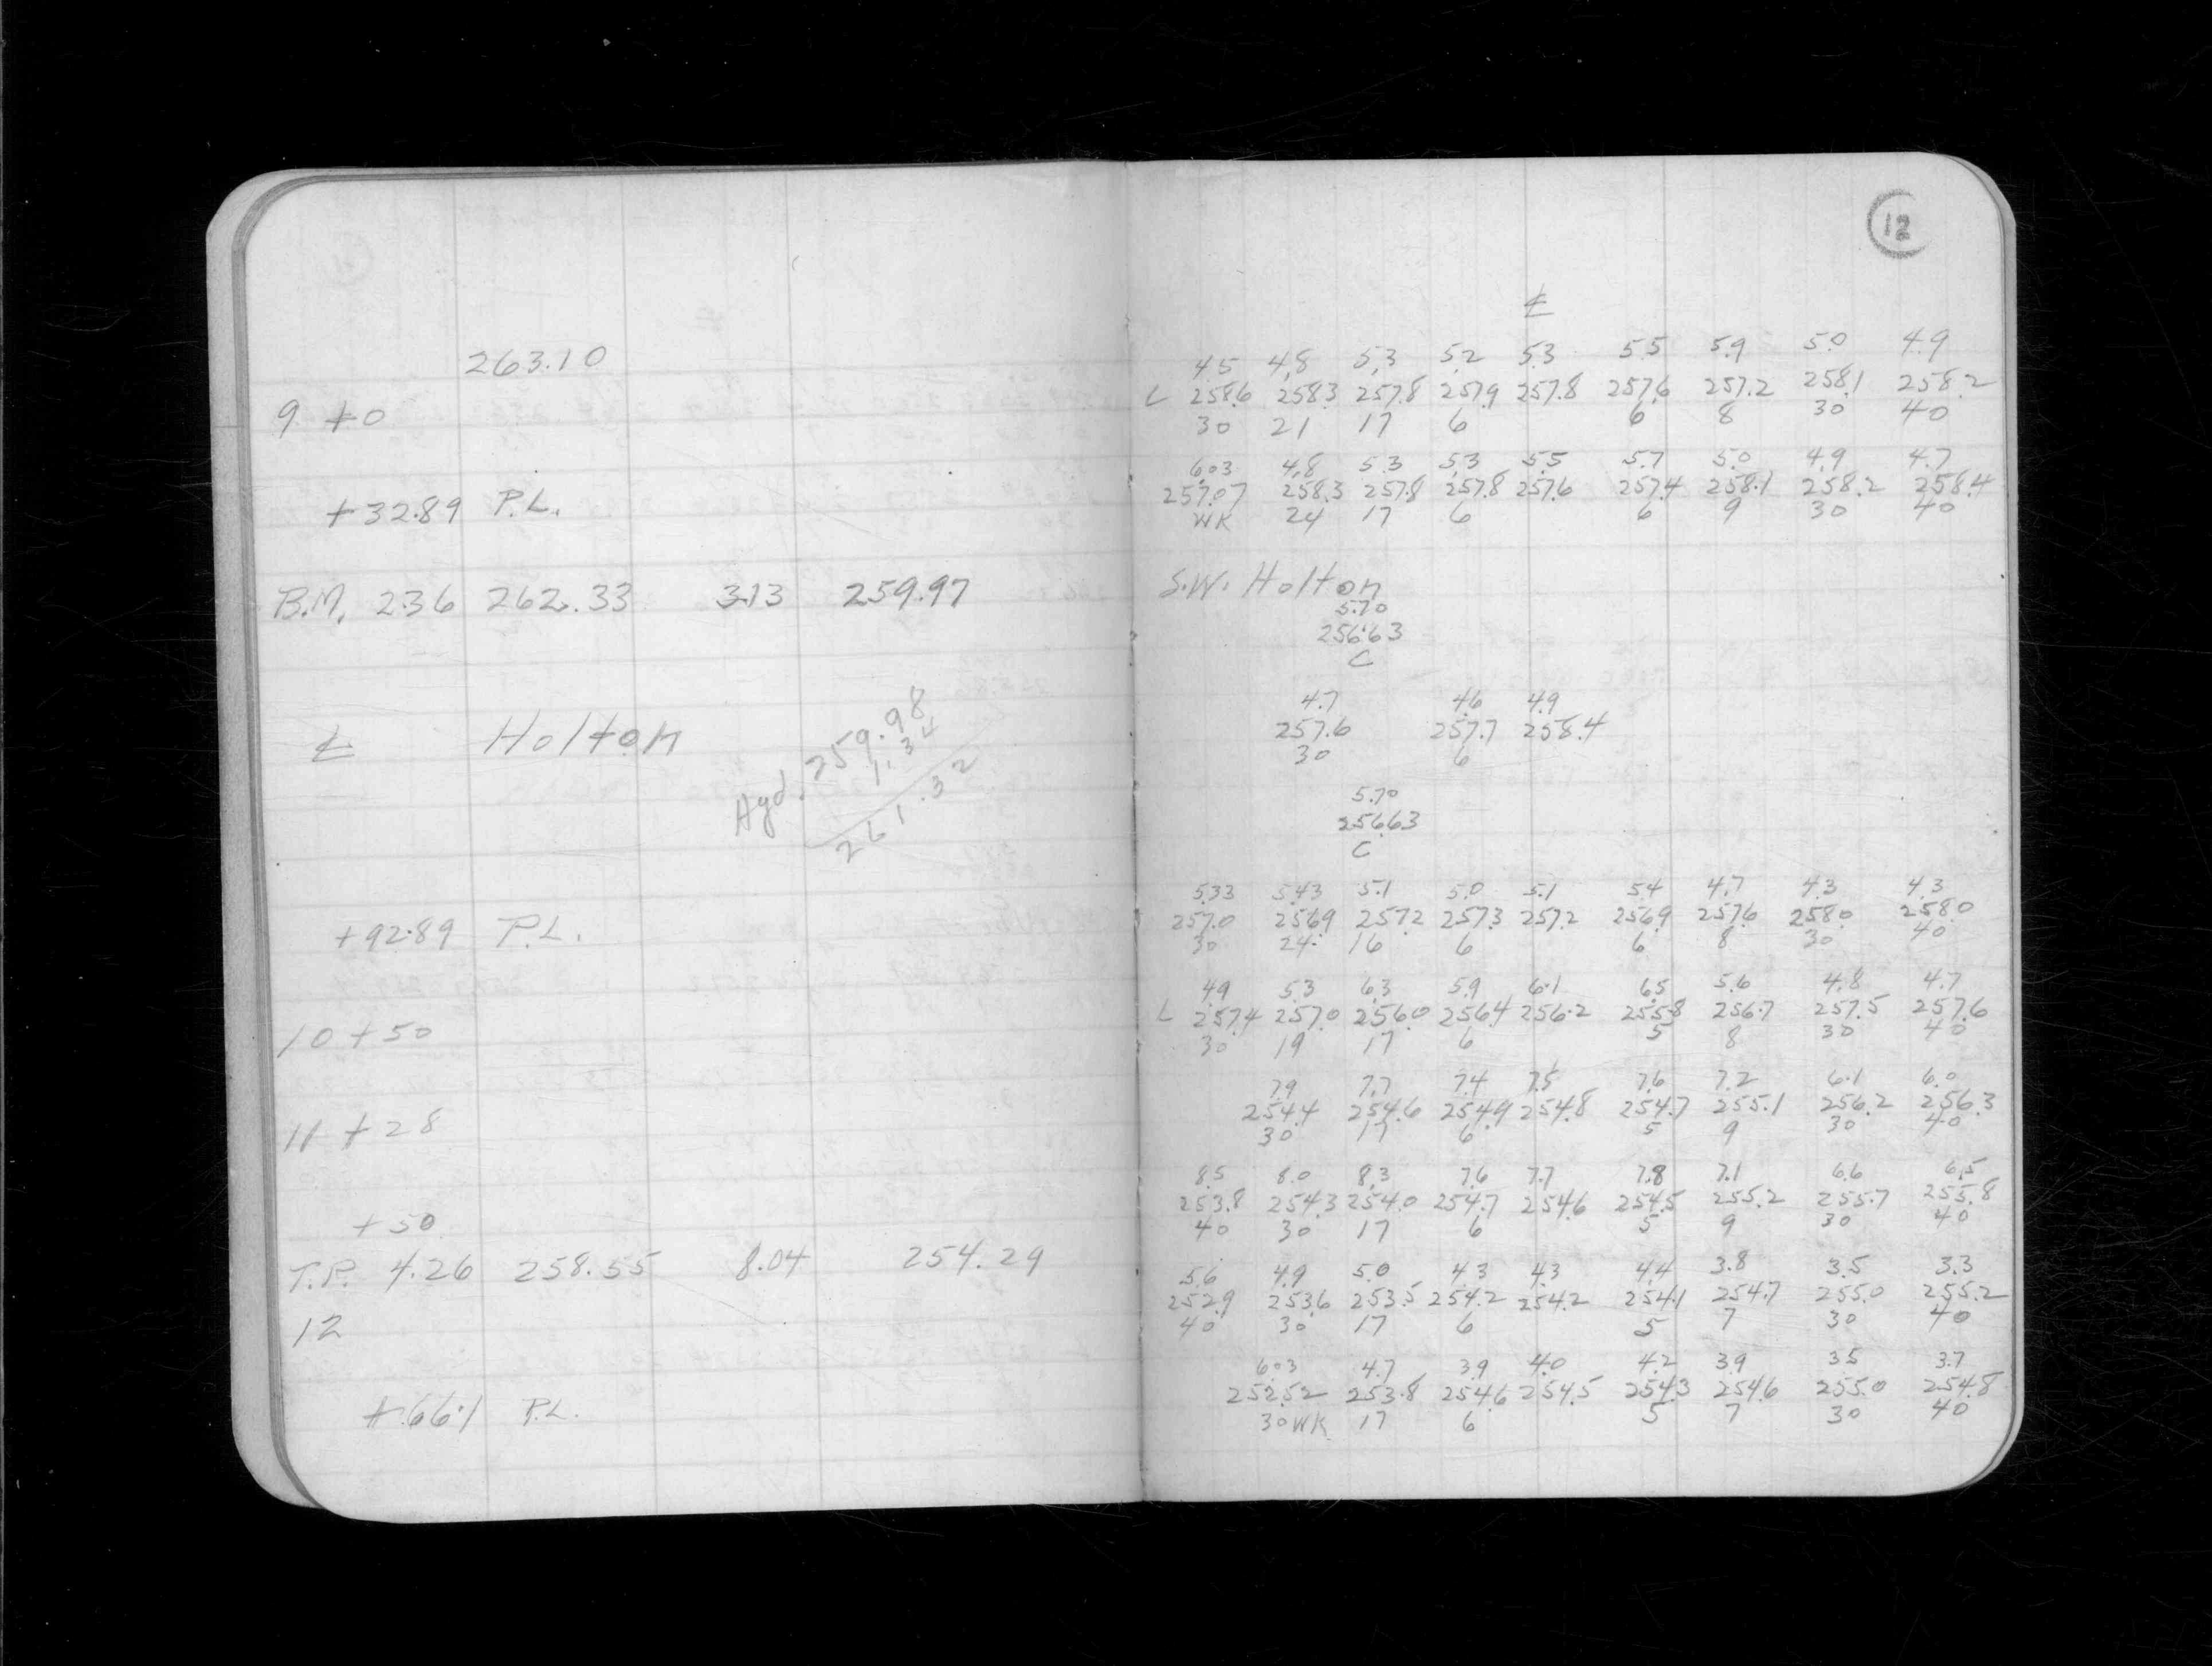 12
℄
263.10
4.5 4.8 5.3 5.2 5.3 5.5 5.9 5.0 4.9
9 +0
L 258.6 258.3 257.8 257.9 257.8 257.6 257.2 258.1 258.2
30 21 17 6 6 8 30 40
6.03 4.8 5.3 5.3 5.5 5.7 5.0 4.9 4.7
+32.89 P.L.
257.07 258.3 257.8 257.8 257.6 257.4 258.1 258.2 258.4
WK 24 17 6 6 9 30 40
B.M. 2.36 262.33 3.13 259.97
S.W. Holton
5.70
256.63
C
4.7 4.6 4.9
℄ Holton
257.6 257.7 258.4
30 6
Agd. 259.98
1.34
261.32
5.70
256.63
C
5.33 5.43 5.1 5.0 5.1 5.4 4.7 4.3 4.3
+92.89 P.L.
257.0 256.9 257.2 257.3 257.2 256.9 257.6 258.0 258.0
30 24 16 6 6 8 30 40
4.9 5.3 6.3 5.9 6.1 6.5 5.6 4.8 4.7
10 +50
L 257.4 257.0 256.0 256.4 256.2 255.8 256.7 257.5 257.6
30 19 17 6 5 8 30 40
7.9 7.7 7.4 7.5 7.6 7.2 6.1 6.0
11 +28
254.4 254.6 254.9 254.8 254.7 255.1 256.2 256.3
30 17 6 5 9 30 40
8.5 8.0 8.3 7.6 7.7 7.8 7.1 6.6 6.5
+50
253.8 254.3 254.0 254.7 254.6 254.5 255.2 255.7 255.8
40 30 17 6 5 9 30 40
T.P. 4.26 258.55 8.04 254.29
5.6 4.9 5.0 4.3 4.3 4.4 3.8 3.5 3.3
12
252.9 253.6 253.5 254.2 254.2 254.1 254.7 255.0 255.2
40 30 17 6 5 7 30 40
6.03 4.7 3.9 4.0 4.2 3.9 3.5 3.7
+66.1 P.L.
252.52 253.8 254.6 254.5 254.3 254.6 255.0 254.8
30 WK 17 6 5 7 30 40